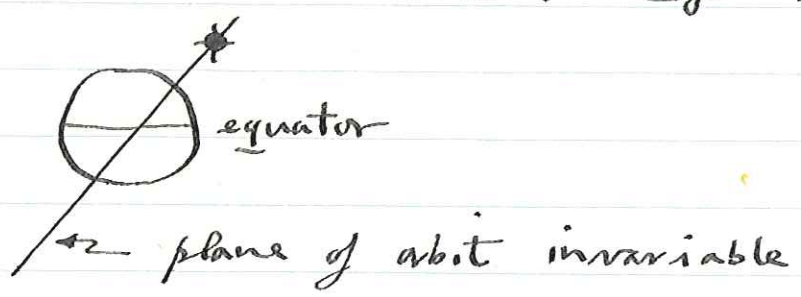 equator
plane of orbit invariable